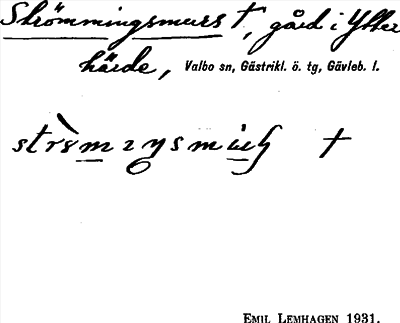 Strömmingsmurs †, gård i Ytter
härde, Valbo sn, Gästrikl. ö. tg, Gävleb. l.
†
EMIL LEMHAGEN 1931.